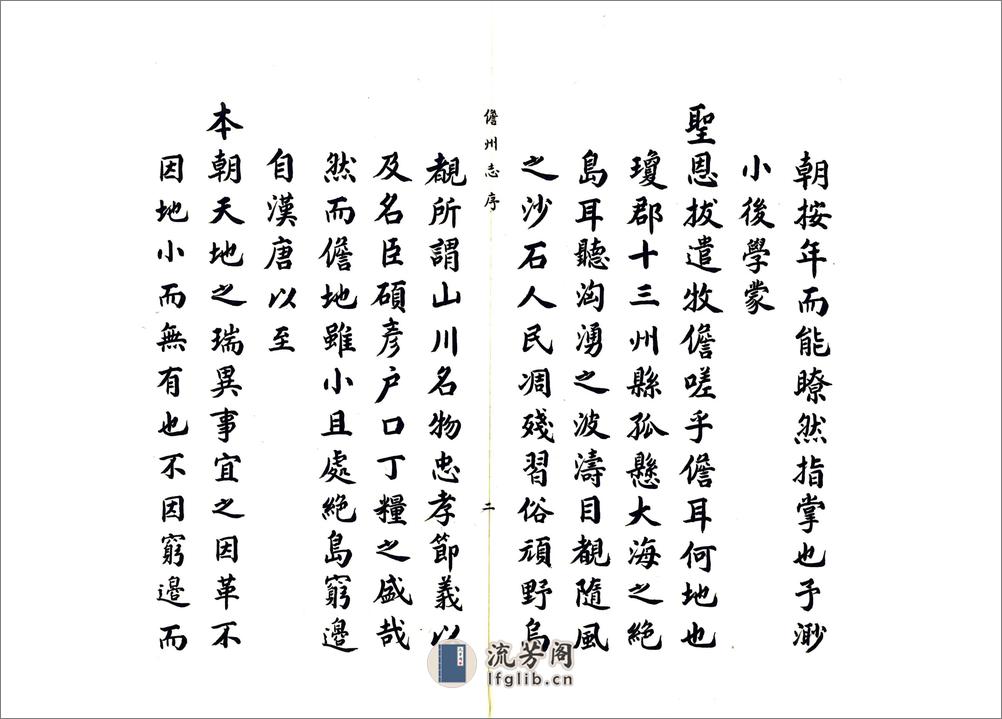 朝按年而能瞭然指掌也予渺
小後學蒙
聖恩拔遣牧儋嗟乎儋耳何地也
瓊郡十三州縣孤懸大海之絶
島耳聽淘湧之波濤目覩隨風
之沙石人民凋殘習俗頑野烏
儋州志序
二
覩所謂山川名物忠孝節義以
及名臣碩彥户口丁糧之盛哉
然而儋地雖小且處絶島窮邊
自漢唐以至
本朝天地之瑞異事宜之因革不
因地小而無有也不因窮邊而
流芳阁
lfglib.cn